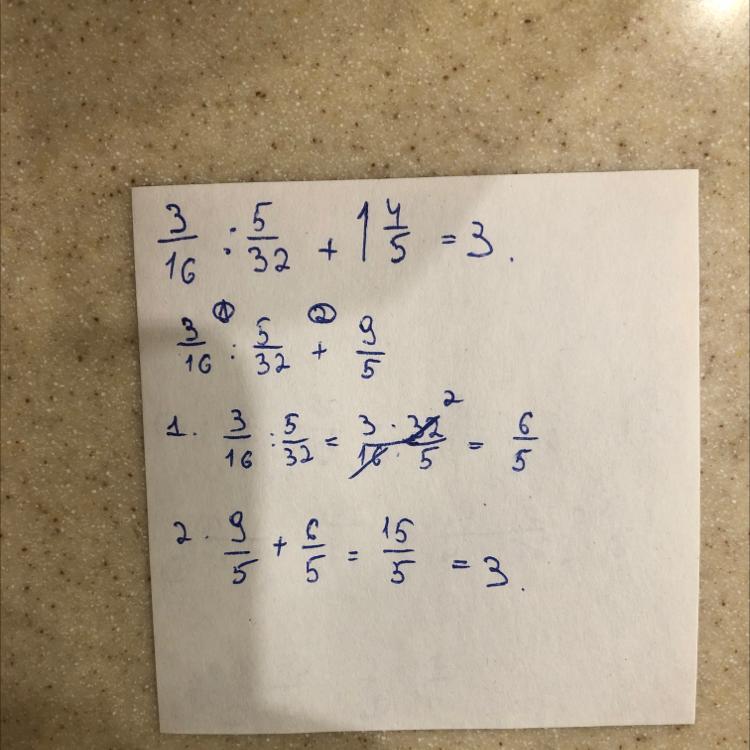 3/16 : 5/32 + 1 4/5 = 3.
3/16 ① : 5/32 ② + 9/5
1. 3/16 : 5/32 = 3 · 32 2/16 · 5 = 6/5
2. 9/5 + 6/5 = 15/5 = 3.